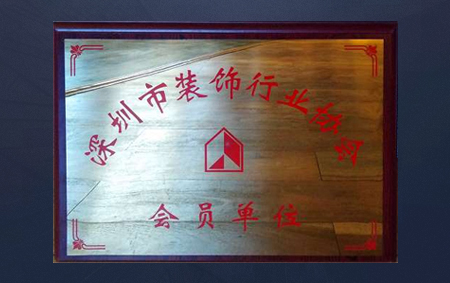 深圳市装饰行业协会
会员单位